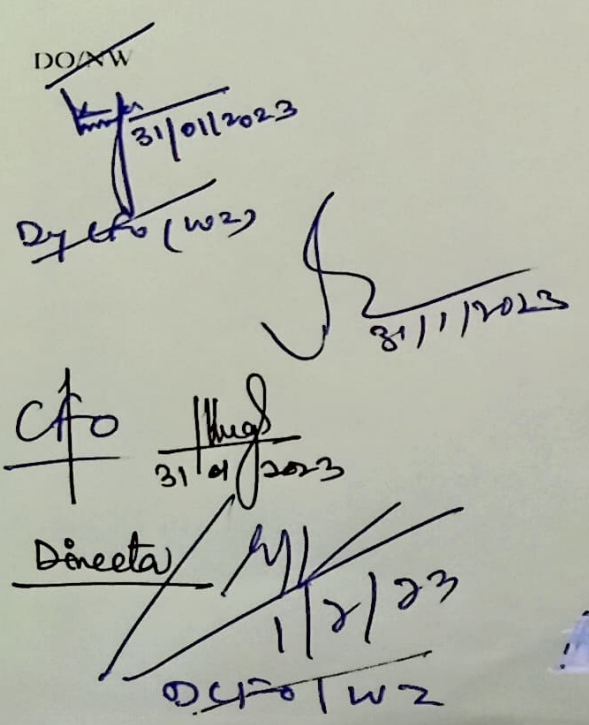 DO/NW
31/01/2023
Dy CFO (WZ)
31/1/2023
CFO
31/01/2023
Director
1/2/23
DCFO/WZ